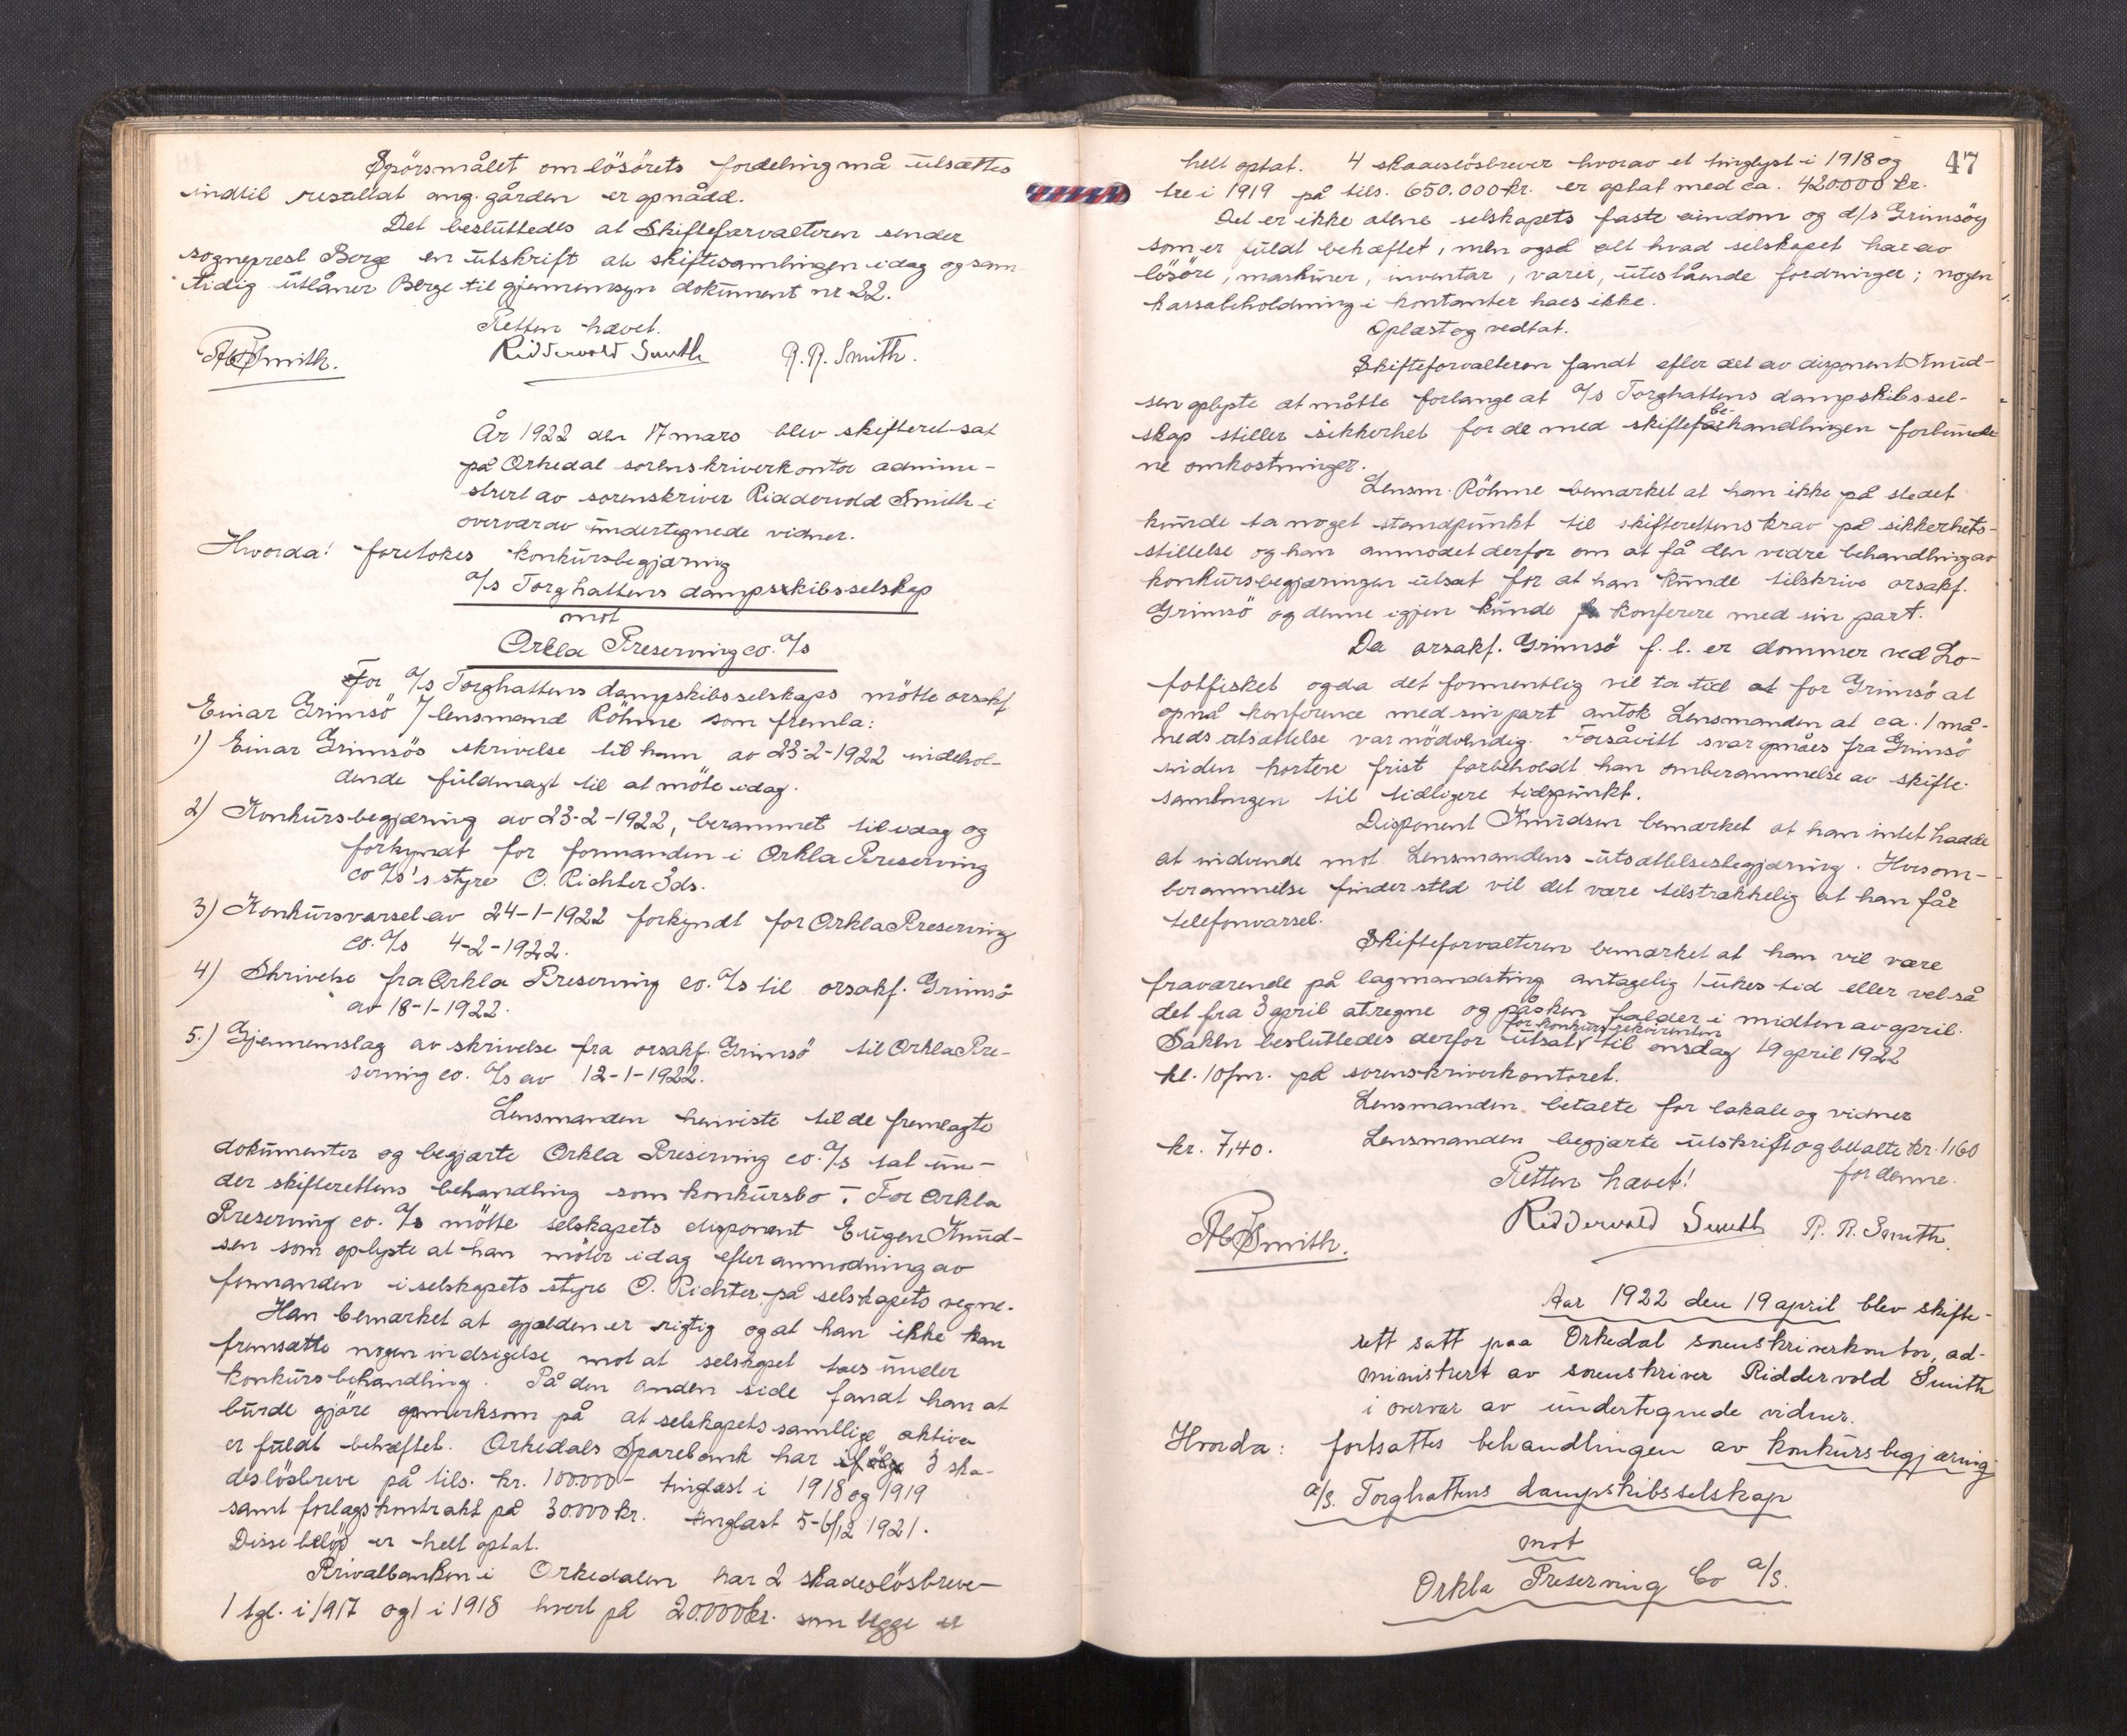 Spörsmålet om lösörets fordeling må utsættes
indtil resultat ang. gården er opnådd.
Det besluttedes at Skifteforvalteren sender
sogneprest Berge en utskrift av skiftesamlingen idag og sam-
tidig utlåner Berge til gjennemsyn dokument nr 22.
Retten hævet.
Smith. Riddervold Smith R. R. Smith.
År 1922 den 17 mars blev skifteret sat
på Orkedal sorenskriverkontor admini-
strert av sorenskriver Riddervold Smith i
overvær av undertegnede vidner.
Hvorda! foretokes konkursbegjæring
a/s Torghattens dampskibsselskap
mot
Orkla Preserving co. a/s
For a/s Torghattens dampskibsselskaps mötte orsakf.
Einar Grimsö / lensmand Röhme som fremla:
1) Einar Grimsös skrivelse til ham av 23-2-1922 indehol-
dende fuldmagt til at möte idag.
2) Konkursbegjæring av 23-2-1922, berammet til idag og
forkyndt for formanden i Orkla Preserving
co a/s's styre O. Richter 3ds.
3) Konkursvarsel av 24-1-1922 forkyndt for Orkla Preserving
co. a/s 4-2-1922.
4) Skrivelse fra Orkla Preserving co. a/s til orsakf. Grimsö
av 18-1-1922.
5.) Gjennemslag av skrivelse fra orsakf. Grimsö til Orkla Pre-
serving co. a/s av 12-1-1922.
Lensmanden henviste til de fremlagte
dokumenter og begjærte Orkla Preserving co. a/s tat un-
der skifterettens behandling som konkursbo. For Orkla
Preserving co. a/s mötte selskapets disponent Eugen Knud-
sen som oplyste at han möter idag efter anmodning av
formanden i selskapets styre O. Richter på selskapets vegne.
Han bemærket at gjælden er rigtig og at han ikke kan
fremsætte nogen indsigelse mot at selskapet taes under
konkursbehandling. På den anden side fandt han at
burde gjöre opmerksom på at selskapets samtlige aktiva
er fuldt behæftet. Orkedals Sparebank har 3 ska-
deslösbreve på tils. kr. 100000- tinglæst i 1918 og 1919
samt forlagskontrakt på 30.000 kr. tinglæst 5-6/12 1921.
Disse belöp er helt optat.
Privatbanken i Orkedalen har 2 skadeslösbreve-
1 tgl. i 1917 og 1 i 1918 hvert på 20.000 kr. som begge er
47
helt optat. 4 skadeslösbrever hvorav et tinglyst i 1918 og
tre i 1919 på tils. 650.000 kr. er optat med ca. 420000 kr.
Det er ikke alene selskapets faste eiendom og d/s Grimsöy
som er fuldt behæftet, men også alt hvad selskapet har av
lösöre, maskiner, inventar, varer, utestående fordringer; nogen
kassabeholdning i kontanter haes ikke.
Oplæst og vedtat.
Skifteforvalteren fandt efter det av disponent Knud-
sen oplyste at måtte forlange at a/s Torghattens dampskibssel-
skap stiller sikkerhet for de med skiftebehandlingen forbundne
ne omkostninger.
Lensm. Röhme bemærket at han ikke på stedet
kunde ta noget standpunkt til skifterettens krav på sikkerhets-
stillelse og han anmodet derfor om at få den vidre behandling av
konkursbegjæringen utsat for at han kunde tilskrive orsakf.
Grimsö og denne igjen kunde konferere med sin part.
Da orsakf. Grimsö f. t. er dommer ved Lo-
fotfisket og da det formentlig vil ta tid for Grimsö at
opnå konference med sin part antok Lensmanden at ca. 1 må-
neds utsættelse var nödvendig. Forsåvitt svar opnåes fra Grimsö
inden kortere frist forbeholdt han omberammelse av skifte-
samlingen til tidligere tidspunkt.
Disponent Knudsen bemærket at han intet hadde
at indvende mot Lensmandens utsættelsesbegjæring. Hvis om-
berammelse finder sted vil det være tilstrækkelig at han får
telefonvarsel.
Skifteforvalteren bemærket at han vil være
fraværende på lagmandsting antagelig 1 ukes tid eller vel så
det fra 3 april at regne og påsken falder i midten av april.
for konkursrekvirenten
Saken besluttedes derfor utsat til onsdag 19 april 1922
kl. 10 fm. på sorenskriverkontoret.
Lensmanden betalte for lokale og vidner
kr. 7,40. Lensmanden begjærte utskrift og betalte kr. 1,60
Retten hævet! for denne.
Smith. Riddervold Smith R. R. Smith.
Aar 1922 den 19 april blev skifte-
rett satt paa Orkedal sorenskriverkontor, ad-
ministrert av sorenskriver Riddervold Smith
i overvær av undertegnede vidner.
Hvorda: fortsattes behandlingen av konkursbegjæring
a/s. Torghattens dampskibsselskap
mot
Orkla Preserving Co a/s.